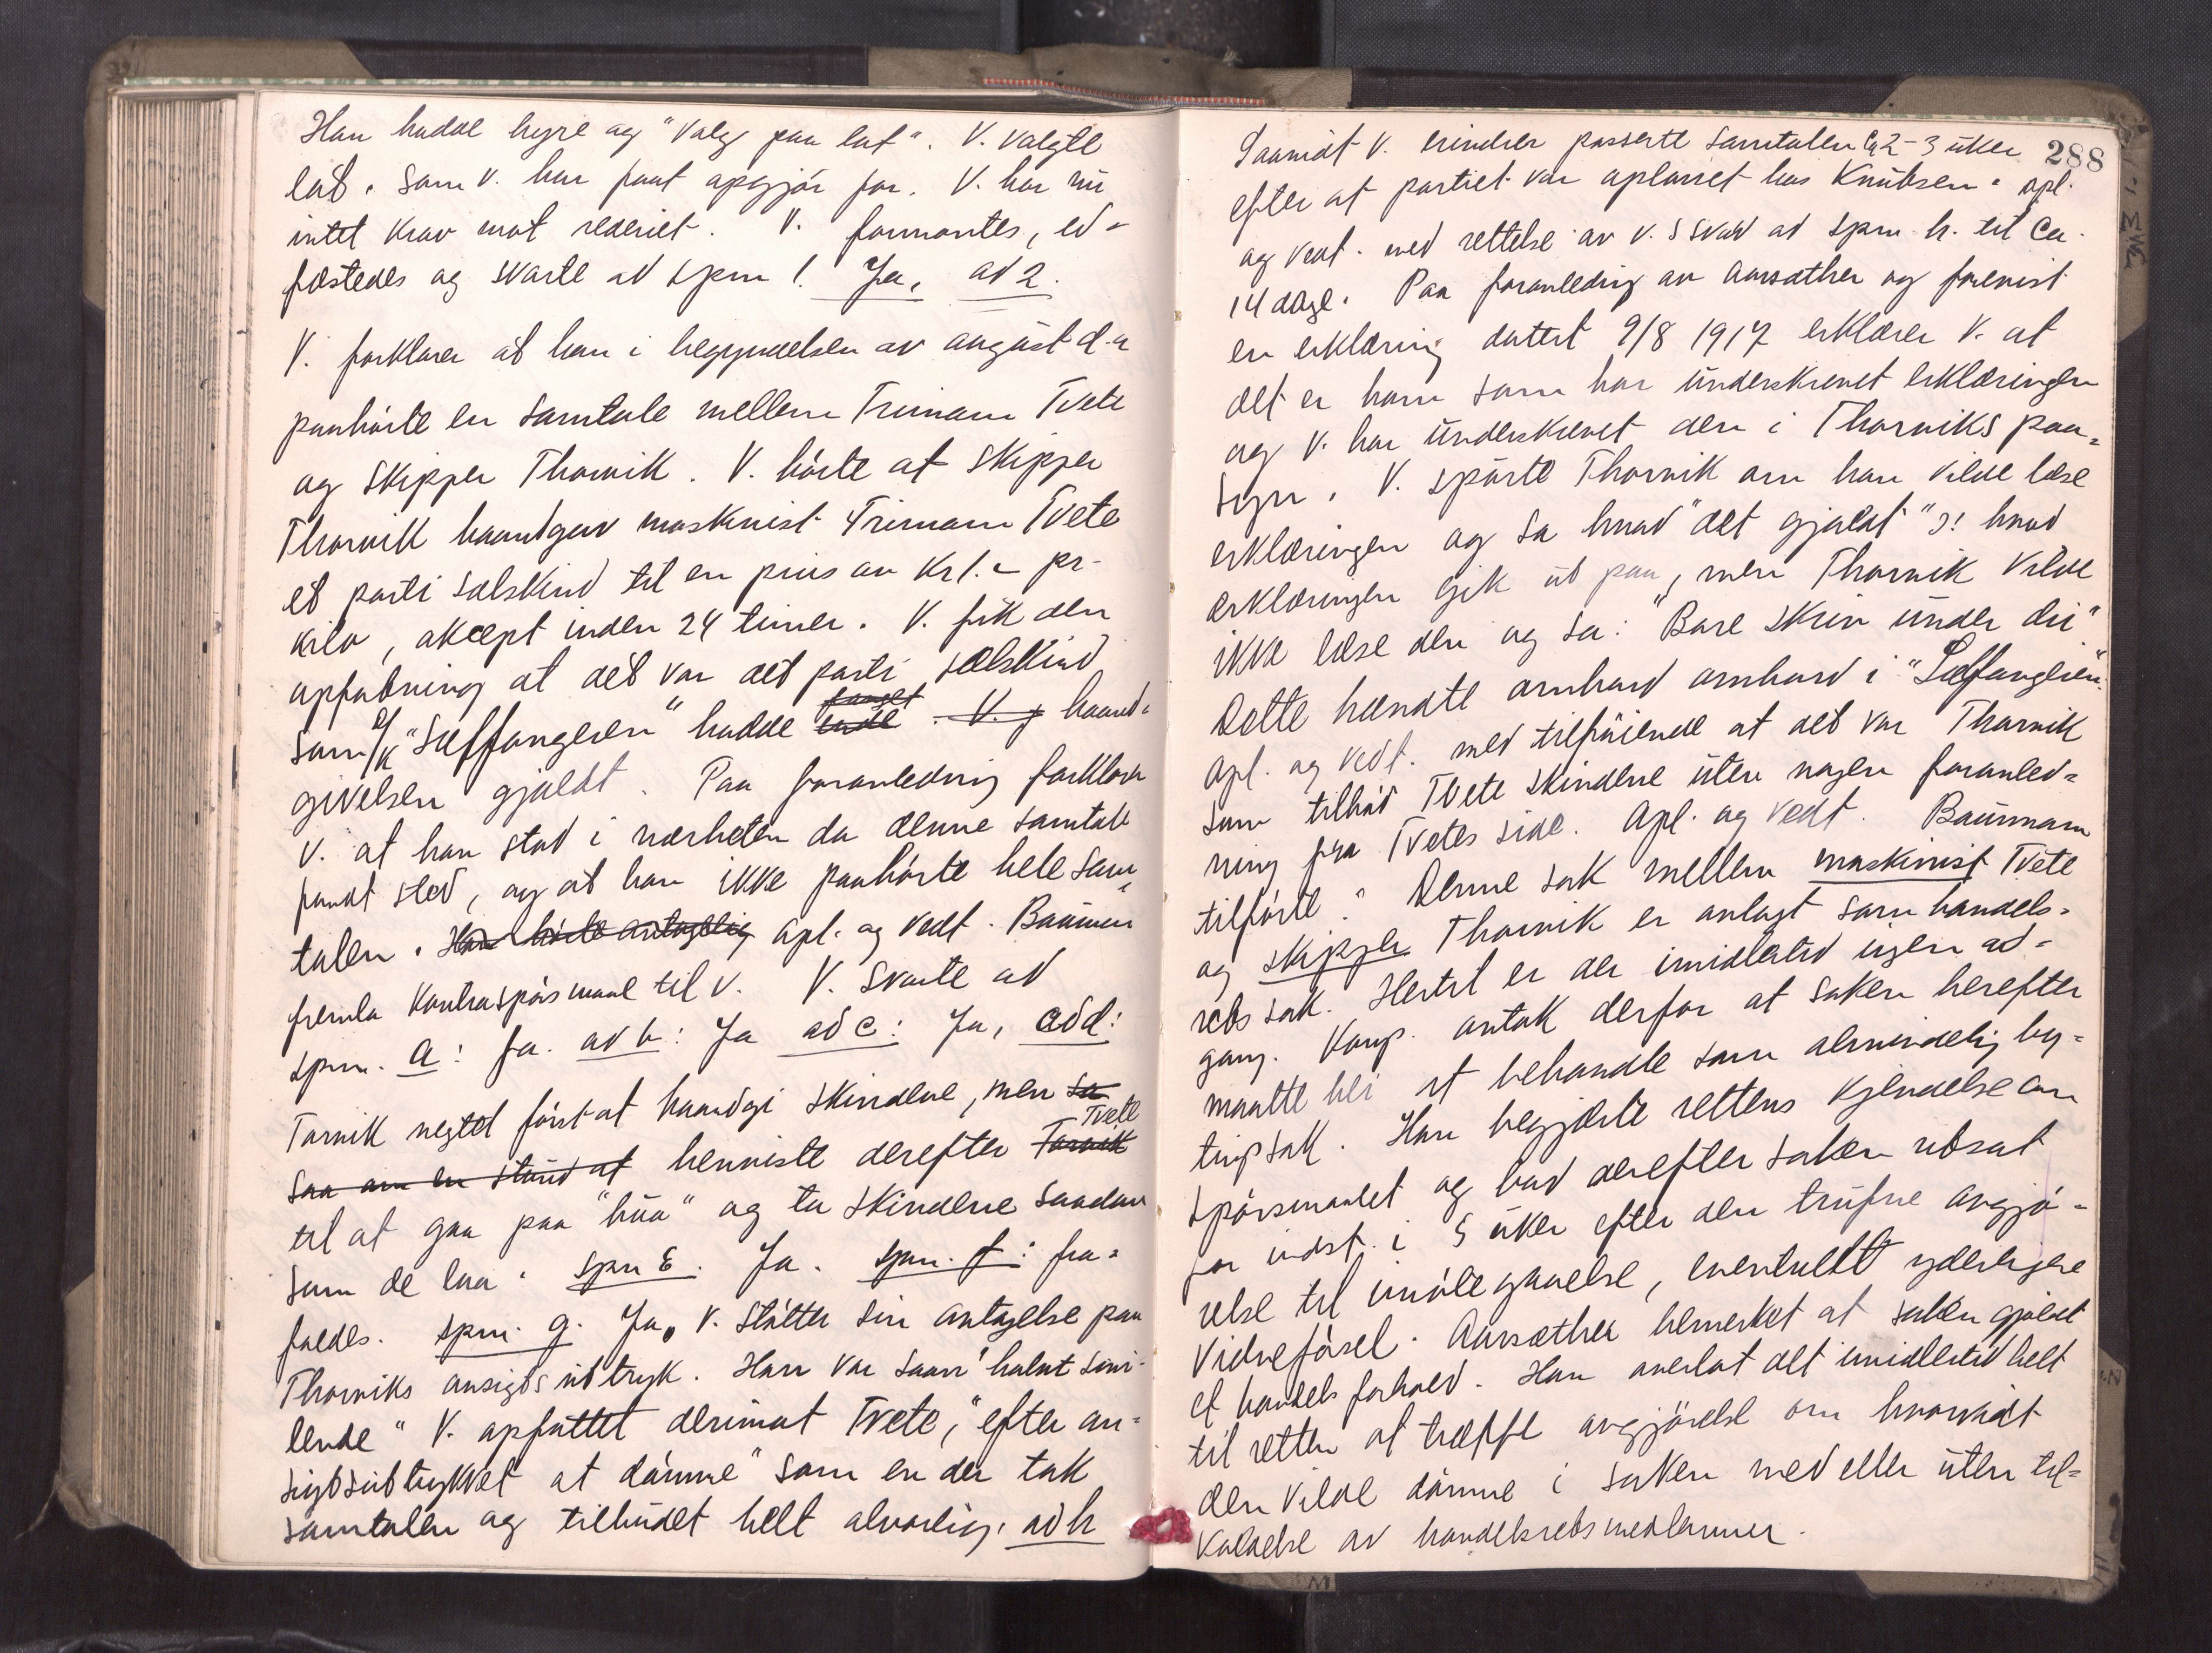 Han hadde hyre og "valg paa lat". V. valgte
lat. Som V. har faat opgjör for. V. har nu
intet krav mot rederiet. V. formantes, ed-
fæstedes og svarte ad spm 1. Ja, ad 2.
V. forklarer at han i begyndelsen av august d.a
paahörte en samtale mellem Trimann Tvete
og skipper Thorvik. V. hörte at skipper
Thorvik haandgav maskinist Trimann Tvete
et parti sælskind til en pris av Kr 1.- pr.
kilo, aksept inden 24 timer. V. fik den
opfatning at det var det parti sælskind
som M/K "Sælfangeren" hadde inde fanget. V. g haand-
givelsen gjaldt. Paa foranledning forklarer
V. at han stod i nærheten da denne samtale
fandt sted, og at han ikke paahörte hele sam-
talen. Han hörte antagelig Opl. og vedt. Baumann
fremla kontraspörsmaal til V. V. svarte ad
spm. a: Ja. ad b: Ja ad c: Ja, ad d:
Torvik negtet först at haandgi skindene, men sa
saa om en stund at henviste derefter Torvik Tvete
til at gaa paa "bua" og ta skindene saadan
som de laa. spm E. Ja. spm. f: fra-
faldes. spm. g. Ja, V. stötter sin antagelse paa
Thorviks ansigtsuttryk. Han var saan "halvt smi-
lende" V. opfattet derimot Tvete, "efter an-
sigtsuttrykket at dömme" som en der tok
samtalen og tilbudet helt alvorlig. ad h
288
Saavidt V. erindrer passerte samtalen ca 2-3 uker
efter at partiet var oplosset hos Knutsen. Opl.
og vedt. med rettelse av V.s svar ad spm. h. til ca.
14 dage. Paa foranledning av Aarsæther og forevist
en erklæring datert 9/8 1917 erklærer V. at
det er ham som har underskrevet erklæringen
og V. har underskrevet den i Thorviks paa-
syn. V. spurte Thorvik om han vilde læse
erklæringen og sa hvad "det gjaldt" ɔ: hvad
erklæringen gik ut paa, men Thorvik vilde
ikke læse den og sa: "Bare skriv under du"
Dette hændte ombord ombord i "Sælfangeren".
Opl. og vedt. med tilföiende at det var Thorvik
som tilböd Tvete skindene uten nogen foranled-
ning fra Tvetes side. Opl. og vedt. Baumann
tilförte: "Denne sak mellem maskinist Tvete
og skipper Thorvik er anlagt som handels-
rets sak. Hertil er der imidlertid ingen ad-
gang. Komp. antok derfor at saken herefter
maatte bli at behandle som almindelig by-
tingsak. Han begjærte rettens kjendelse om
spörsmaalet og bad derefter saken utsat
for indst. i 5 uker efter den trufne avgjö-
relse til imötegaaelse, eventuelt yderligere
vidneförsel. Aarsæther bemerket at saken gjaldt
et handelsforhold. Han overlot det imidlertid helt
til retten at træffe avgjörelse om hvorvidt
den vilde dömme i saken med eller uten til-
kaldelse av handelsretsmedlemmer.